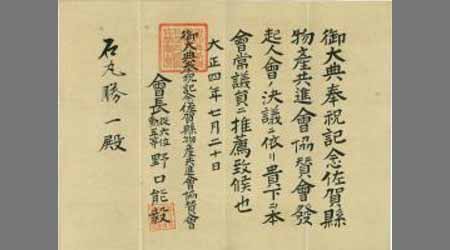 御大典奉祝記念佐賀縣
物產共進會協賛會發
起人會ノ決議ニ依リ貴下ヲ本
會常議員ニ推薦致候也
大正四年七月二十日
御大典奉祝記念佐賀縣物產共進會協賛會
會長 從六位 勲五等 野口能毅
石丸勝一殿